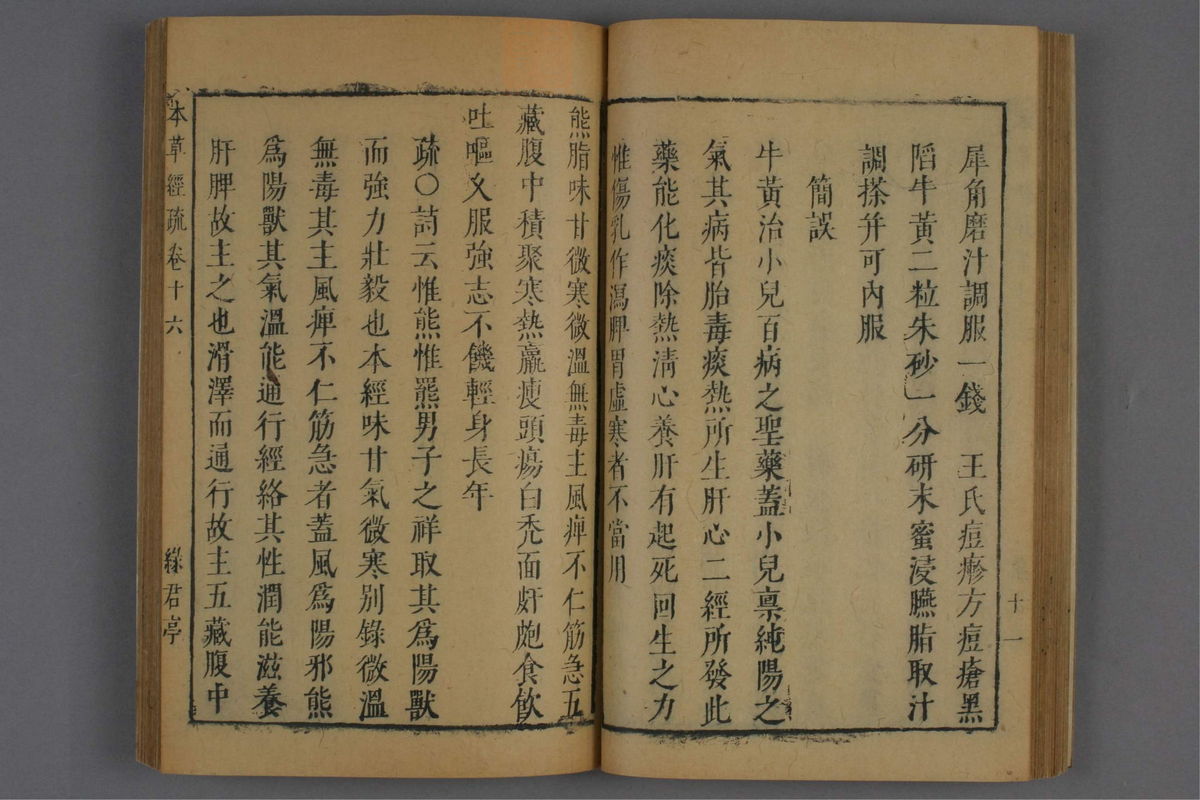 犀角磨汁調服一錢　王氏痘疹方痘瘡黑
陷牛黃二粒朱砂一分研末蜜浸臙脂取汁
調搽并可內服
簡誤
牛黃治小兒百病之聖藥蓋小兒禀純陽之
氣其病皆胎毒痰熱所生肝心二經所發此
藥能化痰除熱淸心養肝有起死回生之力
惟傷乳作瀉脾胃虛寒者不當用
十一
熊脂味甘微寒微溫無毒主風痺不仁筋急五
藏腹中積聚寒熱羸瘦頭瘍白禿面皯皰食飮
吐嘔久服強志不饑輕身長年
疏〇詩云惟熊惟羆男子之祥取其爲陽獸
而強力壯毅也本經味甘氣微寒別錄微溫
無毒其主風痺不仁筋急者蓋風爲陽邪熊
爲陽獸其氣溫能通行經絡其性潤能滋養
肝脾故主之也滑澤而通行故主五藏腹中
本草經疏卷十六　綠君亭